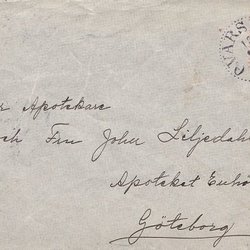 KVARS
Apotekare
och Fru John Liljedah
Apoteket Enhö
Göteborg